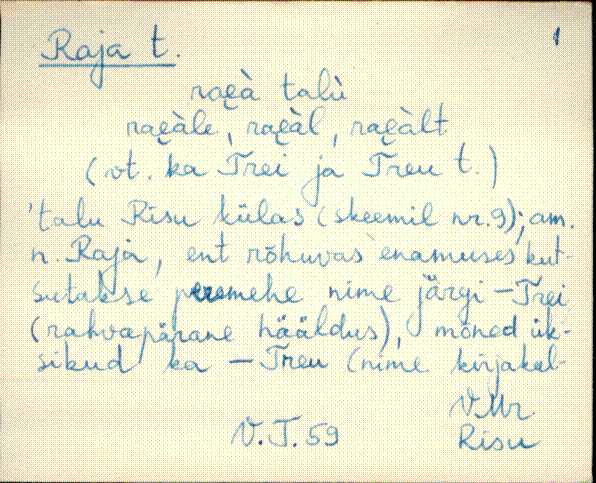 Raja t. 1
rae̯à talù
rae̯àle, rae̯àl, rae̯àlt
(vt. ka Trei ja Treu t.)
'talu Risu külas (skeemil nr. 9); am.
n. Raja, ent rõhuvas enamuses kut-
sutakse peremehe nime järgi - Trei
(rahvapärane hääldus), mõned ük-
sikud ka - Treu (nime kirjakel-
V.Mr
V.J.59 Risu